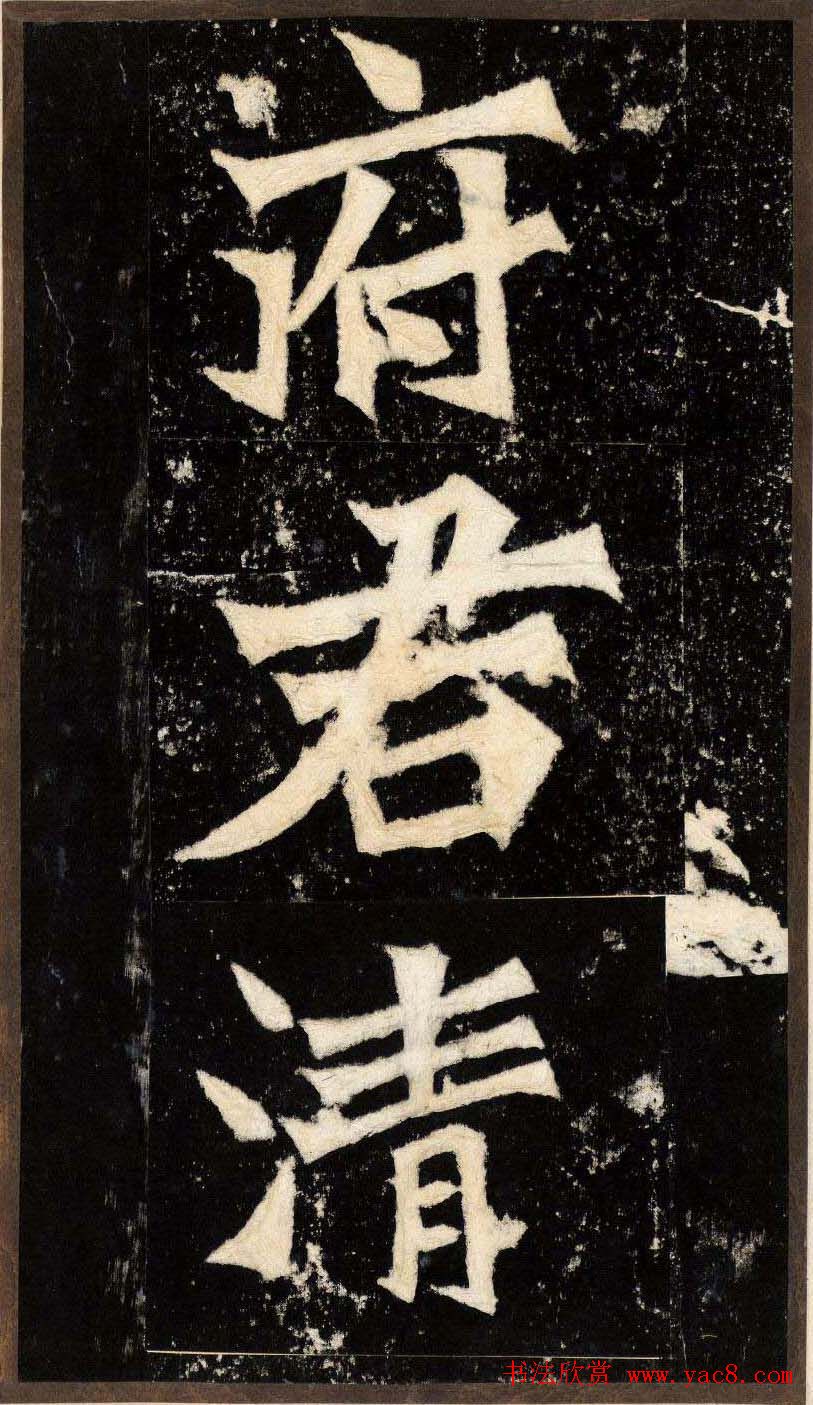 府君清
书法欣赏 www.yac8.com